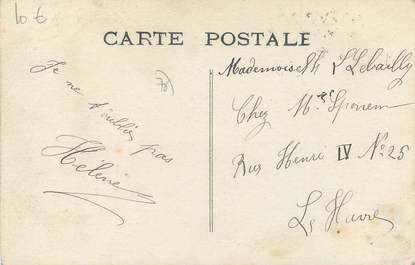 10 €
CARTE POSTALE
Je ne t'oublie pas
Hélène
Mademoiselle Lebailly
Chez
Rue Henri IV No 25
Le Havre